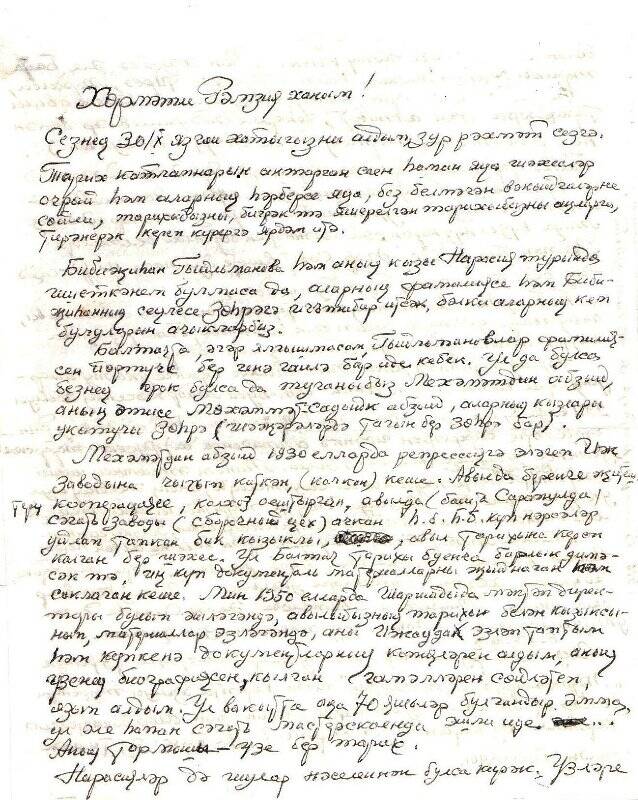 Хөрмәтле Рәмзия ханым!
Сезнең 30/X язган хатыгызны алдым, зур рәхмәт сезгә.
Тарих катламнарын актарган саен һаман яңа шәхесләр
очрый һәм аларның һәрберсе яңа, без белмәгән вакыйгалар
сөйли, тарихыбызны, бигрәк тә яшерелгән тарихыбызны ачарга,
тирәнерәк кереп күрергә ярдәм итә.
Бибиҗиһан Гыйльманова һәм аның кызы Нарасия турында
ишеткәнем булмаса да, аларның фамилиясе һәм Биби-
җиһанның сеңлесе Зөһрәгә игътибар итсәк, бәлки аларның кем
булуларын ачыкларбыз.
Балтачта әгәр ялгышмасам, Гыйльмановлар фамилия-
сен йөртүче бер генә гаилә бар иде кебек. Ул да булса
безнең ерак булса да туганыбыз Мөхәмәтдин абзый,
аның әтисе Мөхәммәт-Садыйк абзый, аларның кызлары
укытучы Зөһрә (шәҗәрәләрдә тагын бер Зөһрә бар).
Мөхәмәтдин абзый 1930 елларда репрессиягә эләгеп Иж
Заводына чыгып киткән (качкан) кеше. Авылда беренче җитен
кооперациясе, колхоз оештырган, авылда (башта Сарапулда)
сәгать заводы (сборочный цех) ачкан һ.б. һ.б. күп нәрсәләр
уйлап тапкан бик кызыклы, авыл тарихына кереп
калган бер шәхес. Ул Балтач тарихы буенча барлык димә-
сәк тә, иң күп документаль материалларны җыйнаган һәм
саклаган кеше. Мин 1950 елларда Шаршадыда мәктәп дирек-
торы булып эшләгәндә, авылыбызның тарихы белән кызыксы-
нып, материаллар эзләгәндә, аны Ижауда эзләп таптым
һәм күпкенә документларның күчермәләрен алдым, аның
үзенең биографиясен, кылган гамәлләрен сөйләтеп,
язып алдым. Ул вакытта аңа 70 яшьләр булгандыр. Әмма,
ул әле һаман сәгать мастерскоенда эшли иде ...
Аның тормышы — үзе бер тарих.
Нарасияләр дә шулар нәселеннән булса кирәк. Үзләре